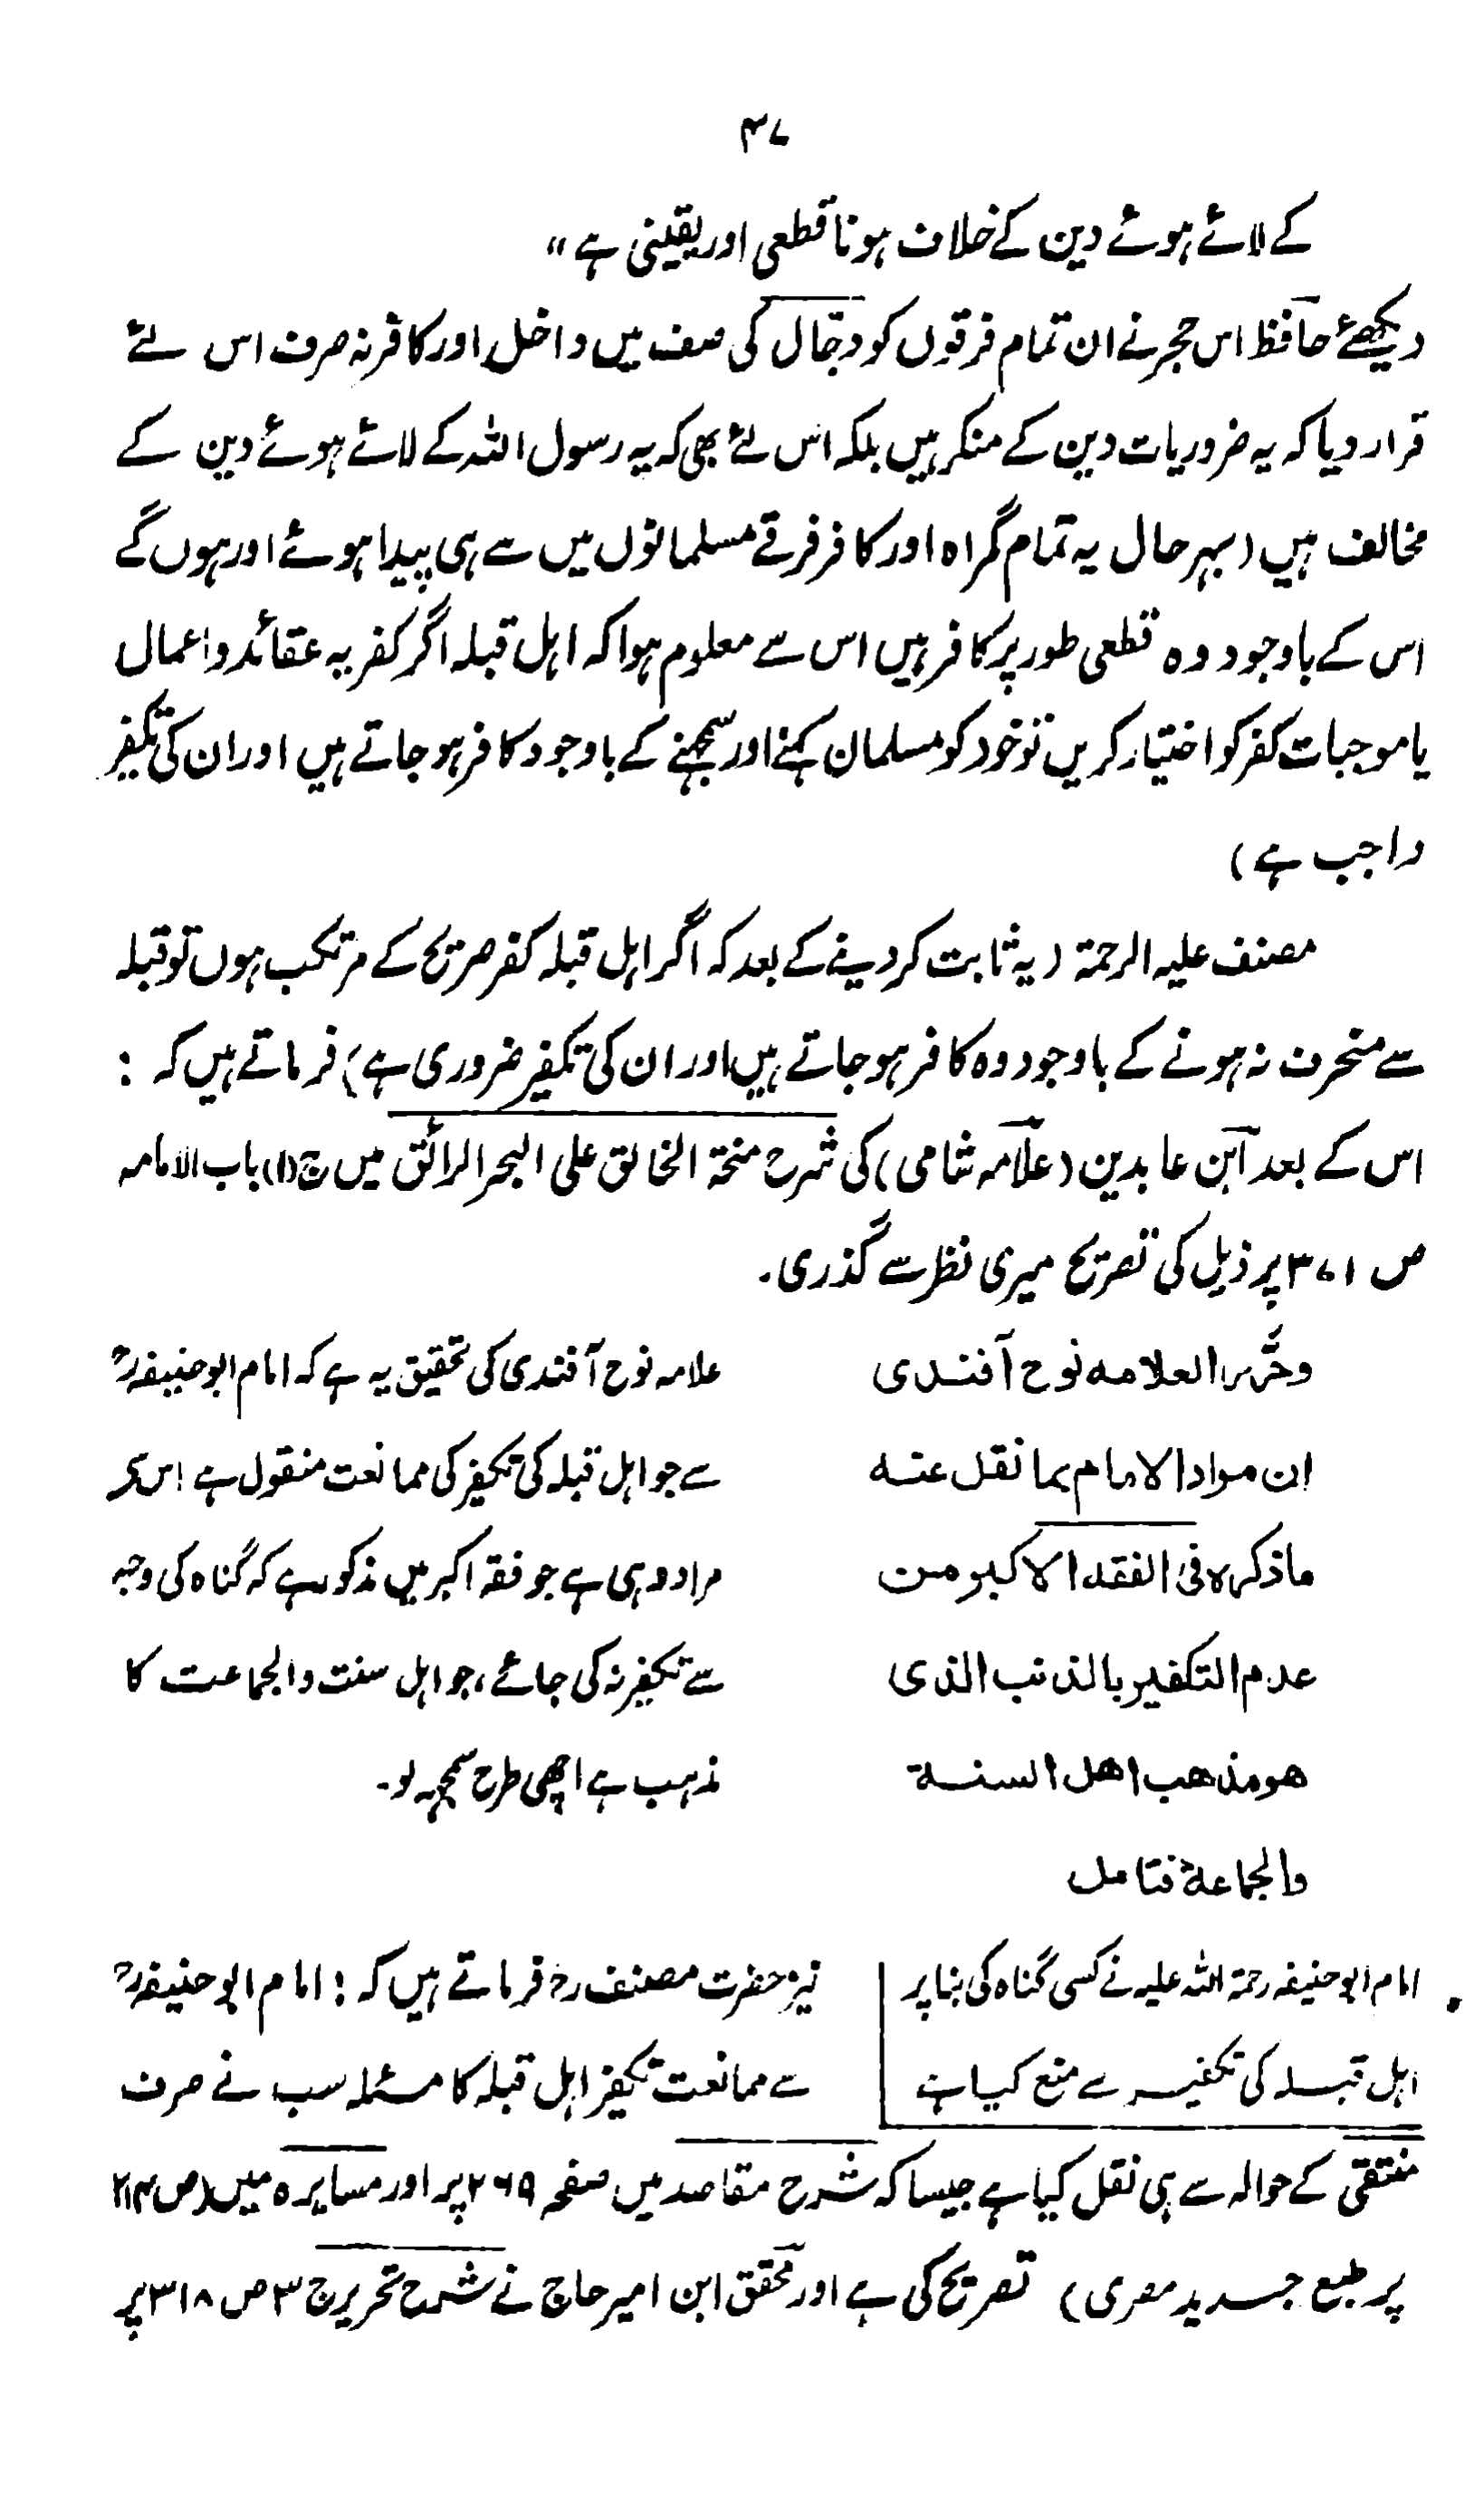 ۳۷
کے لائے ہوئے دین کے خلاف ہونا قطعی اور یقینی ہے ،،
دیکھئے حافظ اس حجر نے ان تمام فرقوں کو دجّال کی صف میں داخل اور کافر نہ صرف اس لئے
قرار دیا کہ یہ ضروریات دین کے منکر ہیں بلکہ اس لئے بھی کہ یہ رسول اللہ کے لائے ہوئے دین کے
مخالف ہیں (بہر حال یہ تمام گمراہ اور کافر فرقے مسلمانوں میں سے ہی پیدا ہوئے اور ہوں گے
اس کے باوجود وہ قطعی طور پر کافر ہیں اس سے معلوم ہوا کہ اہل قبلہ اگر کفریہ عقائد و اعمال
یا موجبات کفر کو اختیار کریں تو خود کو مسلمان کہنے اور سمجھنے کے باوجود کافر ہو جاتے ہیں اور ان کی تکفیر
واجب ہے)
مصنف علیہ الرحمۃ (یہ ثابت کر دینے کے بعد کہ اگر اہل قبلہ کفر صریح کے مرتکب ہوں تو قبلہ
سے منحرف نہ ہونے کے باوجود وہ کافر ہو جاتے ہیں اور ان کی تکفیر ضروری ہے) فرماتے ہیں کہ :
اس کے بعد ابن عابدین (علامہ شامی) کی شرح منحۃ الخالق علی البحر الرائق میں ج (۱) باب الامامہ
ص ۳۷۱ پر ذیل کی تصریح میری نظر سے گذری۔
وحرّر العلامه نوح آفندی
ان مراد الامام بما نقل عنه
ماذكره فی الفقه الاكبر من
عدم التكفير بالذنب الذی
هو مذهب اهل السنة
والجماعة فتامل
علامہ نوح آفندی کی تحقیق یہ ہے کہ امام ابو حنیفہؒ
سے جو اہل قبلہ کی تکفیر کی ممانعت منقول ہے اس کی
مراد وہی ہے جو فقہ اکبر میں مذکور ہے کہ گناہ کی وجہ
سے تکفیر نہ کی جائے، جو اہل سنت والجماعت کا
مذہب ہے اچھی طرح سمجھ لو۔
امام ابو حنیفہ رحمۃ اللہ علیہ نے کسی گناہ کی بنا پر
اہل قبلہ کی تکفیر سے منع کیا ہے
نیز حضرت مصنف رح فرماتے ہیں کہ : امام ابو حنیفہؒ
سے ممانعت تکفیر اہل قبلہ کا مسئلہ سب نے صرف
منتقی کے حوالہ سے ہی نقل کیا ہے جیسا کہ شرح مقاصد میں صفحہ ۲۶۹ پر اور مسایرہ میں (ص ۲۱۴
پر طبع جدید مصری) تصریح کی ہے اور محقق ابن امیر حاج نے شرح تحریر ج ۳ ص ۳۱۸ پر